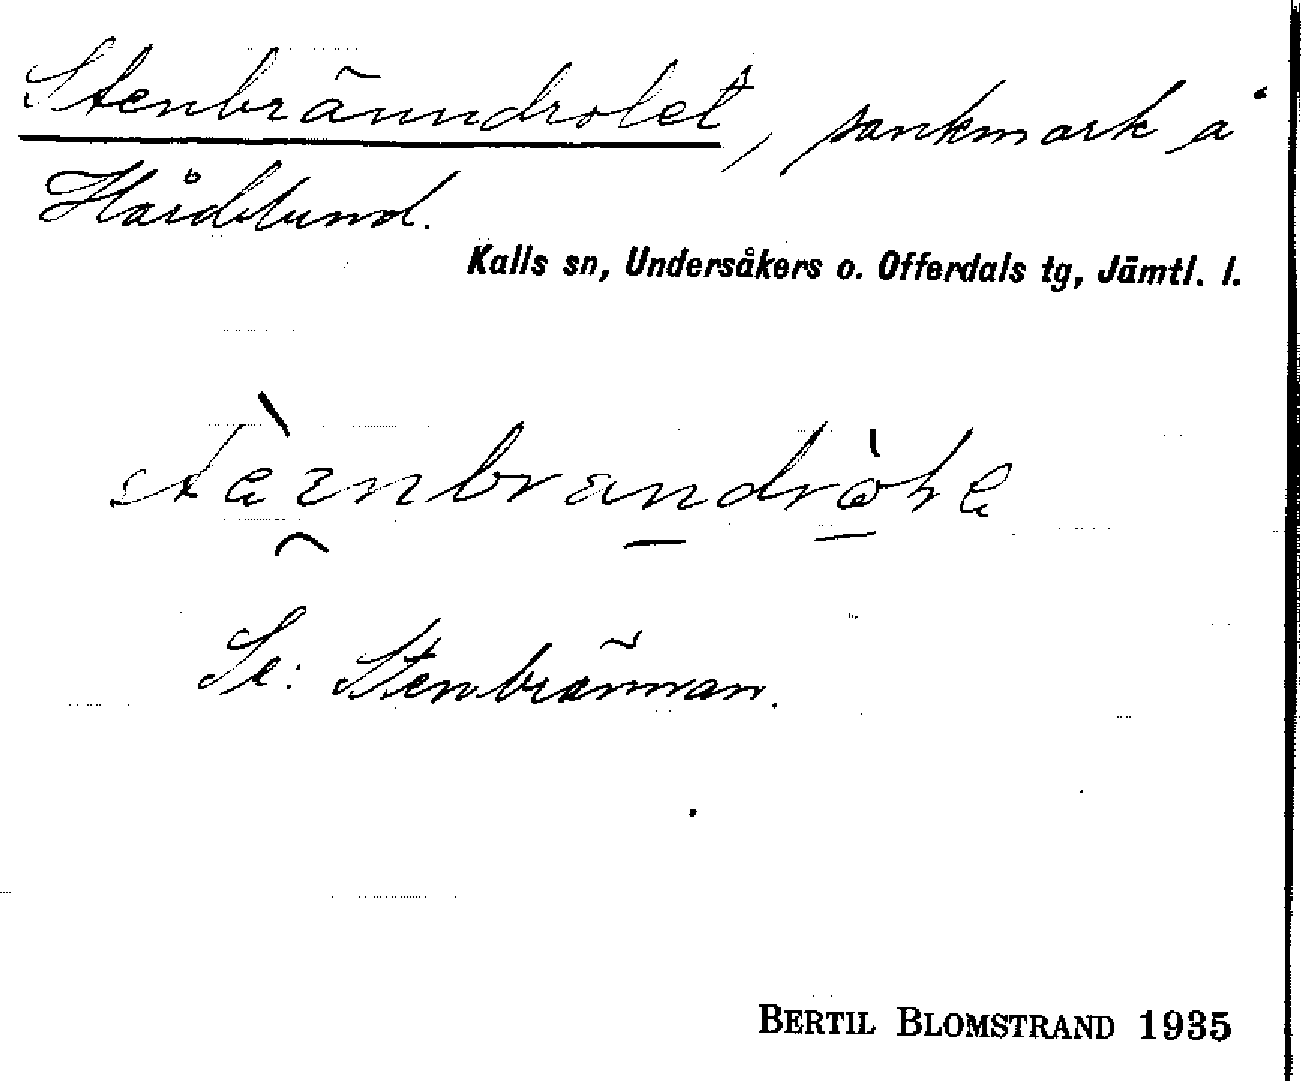 Stenbränndrotet, sankmark å
Håidlund.
Kalls sn, Undersåkers o. Offerdals tg, Jämtl. l.
Se: Stenbrännan.
BERTIL BLOMSTRAND 1935